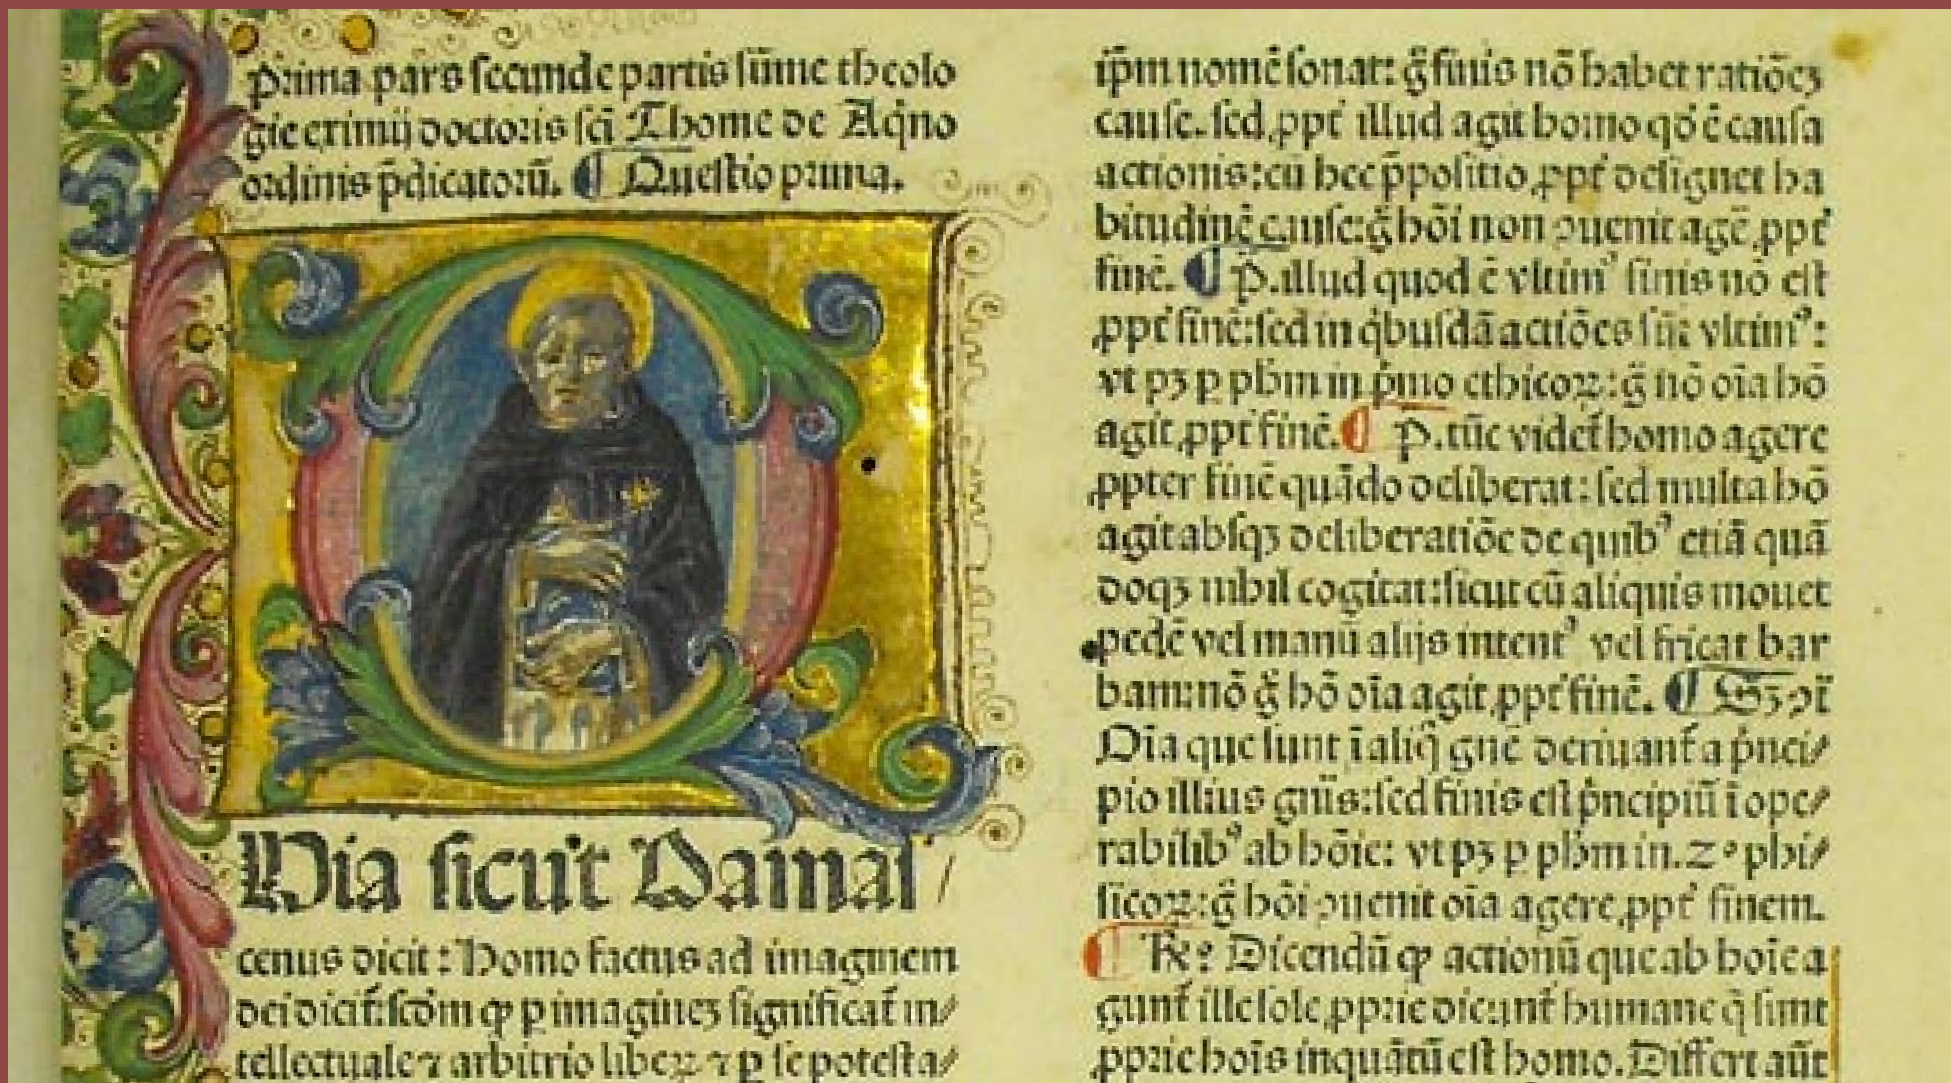 Prima pars secunde partis sūme theolo
gie eximij doctoris scī Thome de Aq̇no
ordinis p̄dicatorū. ¶ Questio prima.
Q
Uia sicut Damas/
cenus dicit: Homo factus ad imaginem
dei dicit᷑: scḋm ꝙ ꝑ imaginē significat᷑ in/
tellectuale ⁊ arbitrio liberꝝ ⁊ ꝑ se potesta/
ip̄m nomē sonat: g̊ finis nō habet ratiōeꝫ
cause. sed ꝓpt᷑ illud agit homo qḋ ē causa
actionis: cū hec p̄positio ꝓpt᷑ designet ha
bitudinē cause: g̊ hōi non ↄuenit agē ꝓpt᷑
finē. ¶ P. illud quod ē vltimꝰ finis nō est
ꝓpt᷑ finē: sed in q̇busdā actiōes sūt vltimꝰ:
vt pꝫ ꝑ ph̄m in p̍mo ethicoꝝ: g̊ nō oīa hō
agit ꝓpt᷑ finē. ¶ P. tūc videt᷑ homo agere
ꝓpter finē quādo deliberat: sed multa hō
agit absqꝫ deliberatiōe de quibꝰ etiā quā
doqꝫ nihil cogitat: sicut cū aliquis mouet
pedē vel manū alijs intentꝰ vel fricat bar
bam: nō g̊ hō oīa agit ꝓpt᷑ finē. ¶ Sꝫ ↄ̄
Oīa que sunt ī aliq̊ gn̄e deriuant᷑ a p̍nci/
pio illius gn̄is: sed finis est p̍ncipiū ī ope/
rabilibꝰ ab hōie: vt pꝫ ꝑ ph̄m in .2º phi/
sicoꝝ: g̊ hōi ↄuenit oīa agere ꝓpt᷑ finem.
¶ R̄º Dicendū ꝙ actionū que ab hoīe a
gunt᷑ ille sole ꝓprie dicunt᷑ humane q̄ sunt
ꝓprie hoīs inquātū est homo. Differt aūt